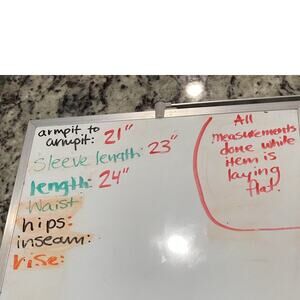 armpit to
armpit: 21"
Sleeve length: 23"
length: 24"
Waist
hips:
inseam:
rise:
All
measurements
done while
item is
laying
flat.